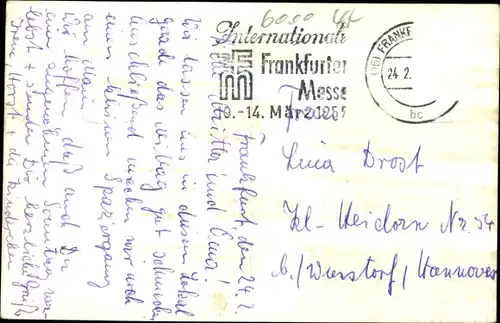 6000
Internationale
Frankfurter
Messe
10.-14. März 1957
(16) FRANKF
24.2.
bc
Frankfurt, den 24.2.
Liebe Mutter und Lina!
Wir lassen uns in diesem Lokal
gerade das Mittag gut schmecken
anschließend machen wir noch
einen schönen Spaziergang
am Main.
Wir hoffen daß auch Du
einen angenehmen Sonntag
und senden Dir herzliche Grüße
Horst + die Kinderchen
Frau
Lina Drost
Kl-Heidorn Nr. 54
b./Wunstorf/Hannover